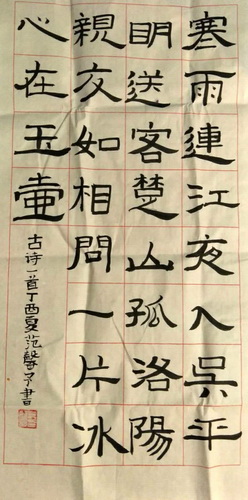 寒雨連江夜入吳平
明送客楚山孤洛陽
親友如相問一片冰
心在玉壺
古诗一首丁酉夏范馨予書